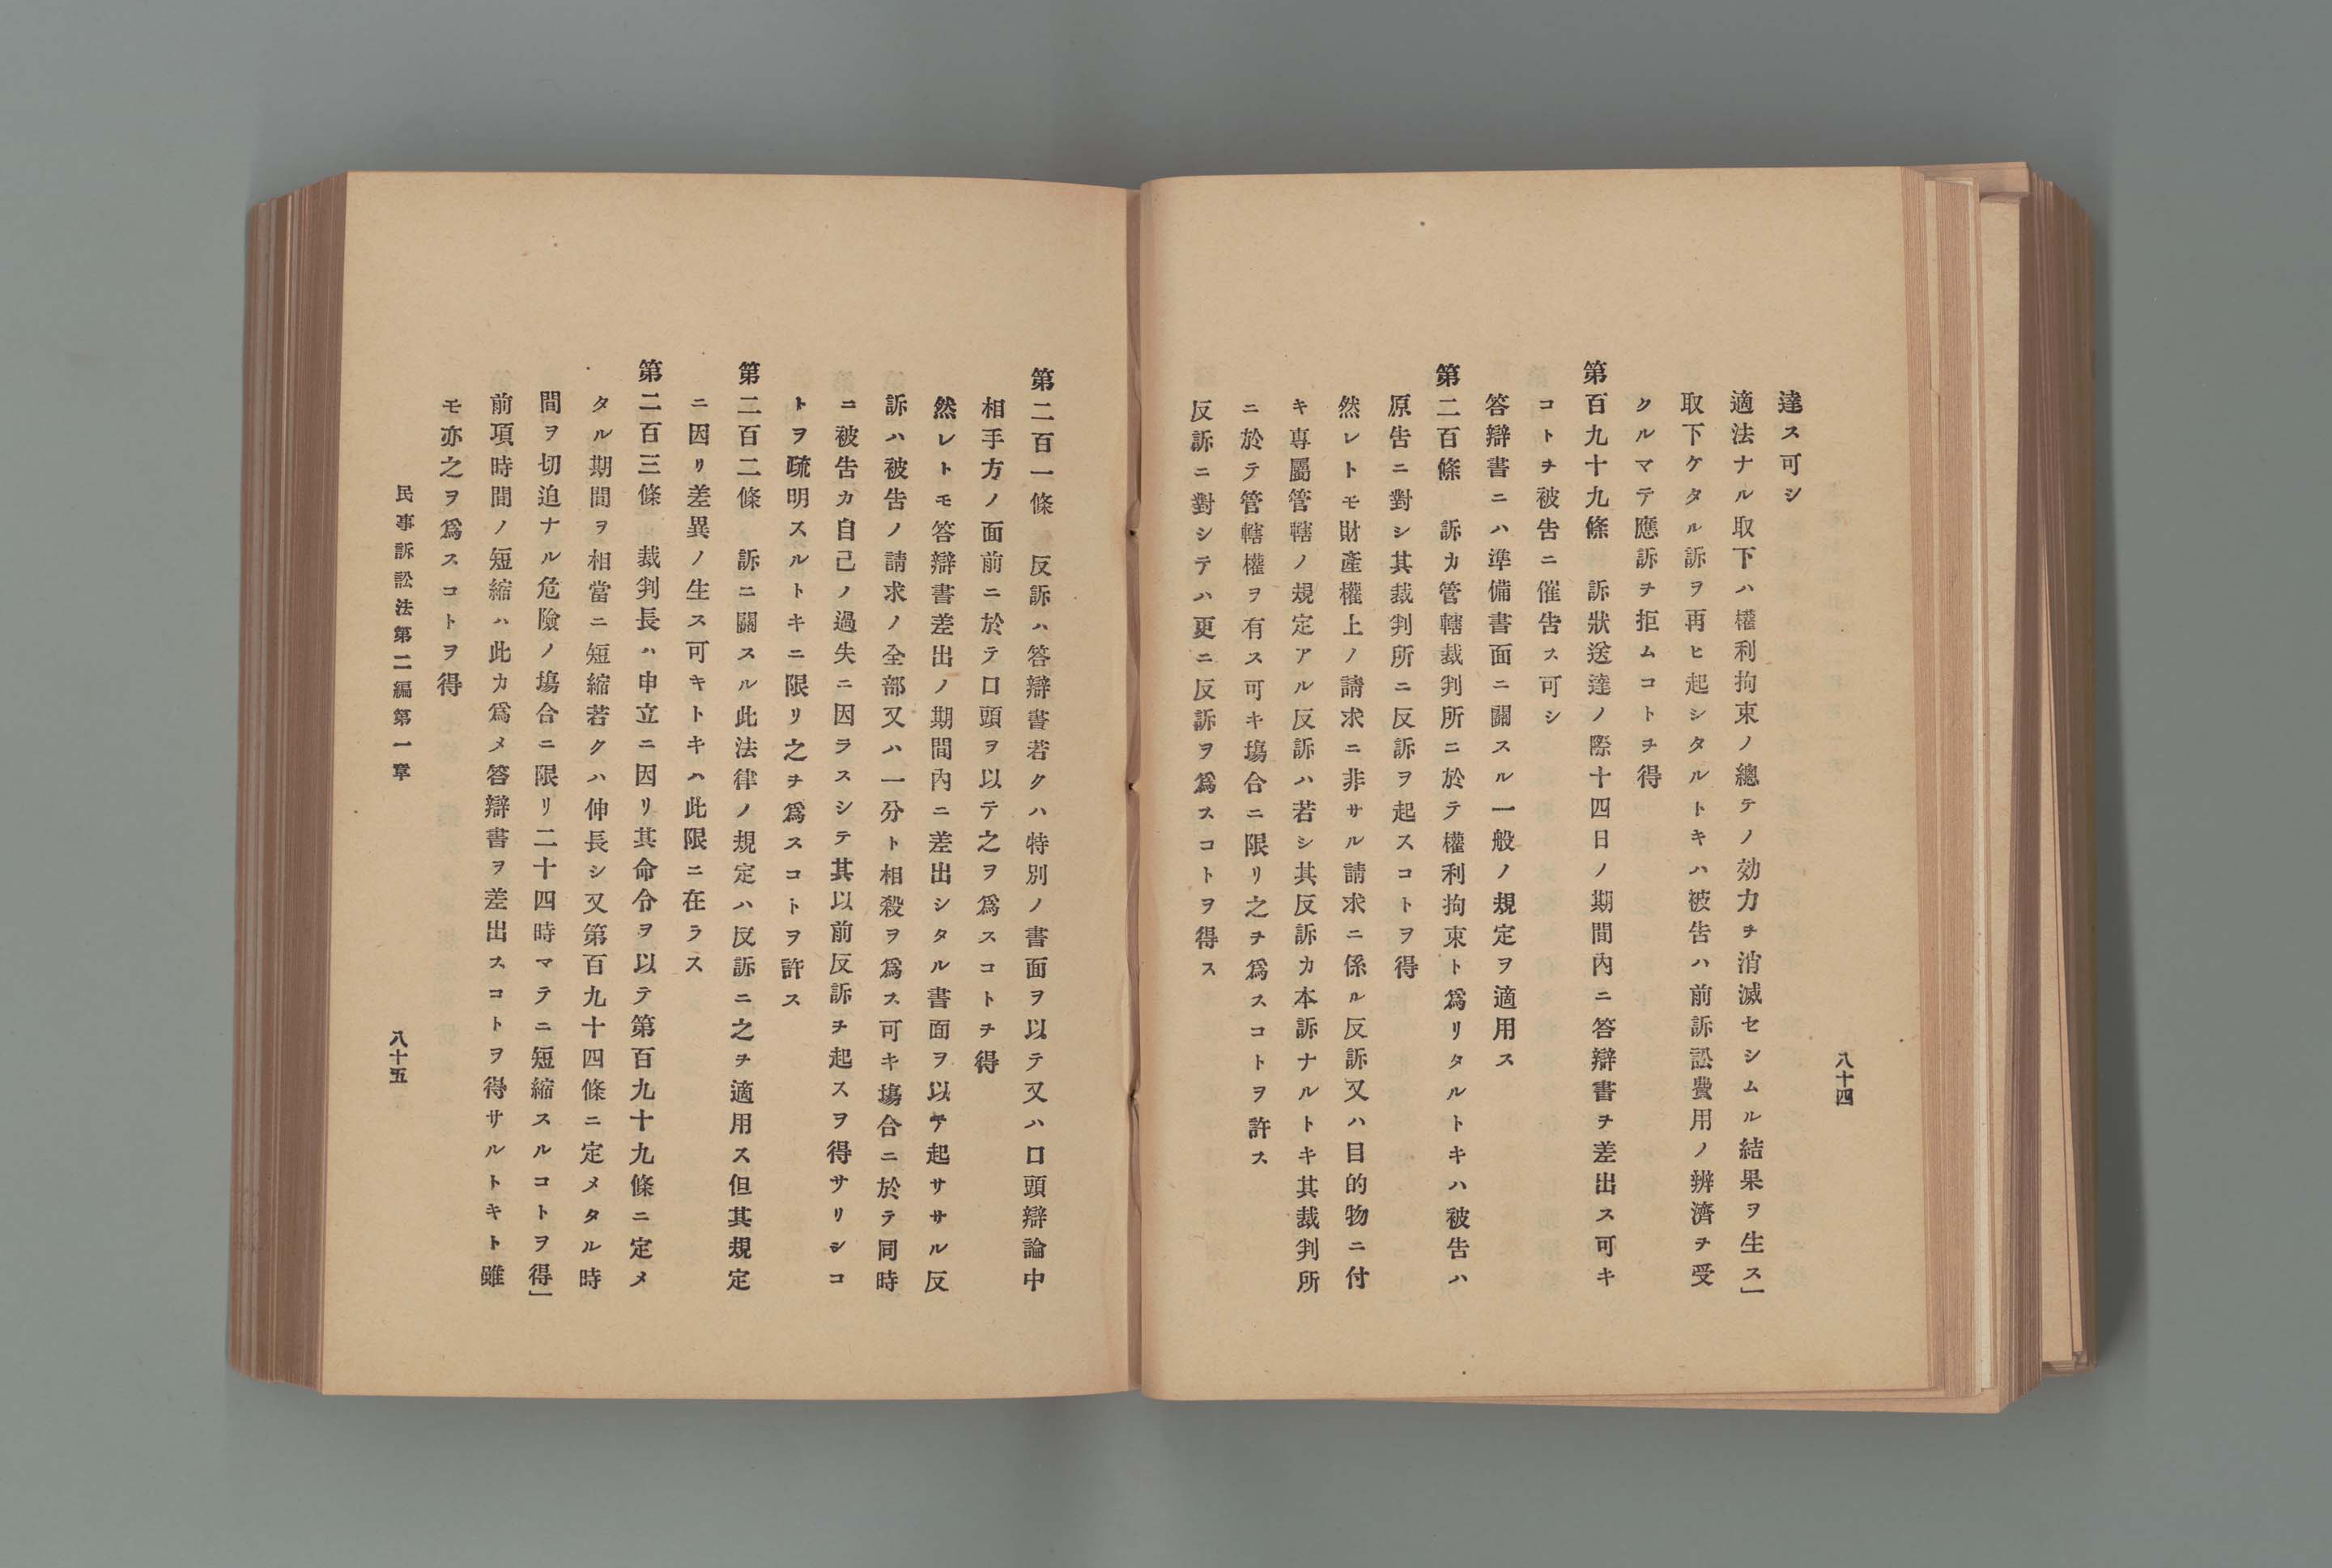 八十四
達ス可シ
適法ナル取下ハ權利拘束ノ總テノ効力ヲ消滅セシムル結果ヲ生ス」
取下ケタル訴ヲ再ヒ起シタルトキハ被告ハ前訴訟費用ノ辨濟ヲ受
クルマテ應訴ヲ拒ムコトヲ得
第百九十九條　訴狀送達ノ際十四日ノ期間內ニ答辯書ヲ差出ス可キ
コトヲ被告ニ催告ス可シ
答辯書ニハ準備書面ニ關スル一般ノ規定ヲ適用ス
第二百條　訴カ管轄裁判所ニ於テ權利拘束ト爲リタルトキハ被告ハ
原告ニ對シ其裁判所ニ反訴ヲ起スコトヲ得
然レトモ財產權上ノ請求ニ非サル請求ニ係ル反訴又ハ目的物ニ付
キ專屬管轄ノ規定アル反訴ハ若シ其反訴カ本訴ナルトキ其裁判所
ニ於テ管轄權ヲ有ス可キ塲合ニ限リ之ヲ爲スコトヲ許ス
反訴ニ對シテハ更ニ反訴ヲ爲スコトヲ得ス
第二百一條　反訴ハ答辯書若クハ特別ノ書面ヲ以テ又ハ口頭辯論中
相手方ノ面前ニ於テ口頭ヲ以テ之ヲ爲スコトヲ得
然レトモ答辯書差出ノ期間內ニ差出シタル書面ヲ以テ起サヽル反
訴ハ被告ノ請求ノ全部又ハ一分ト相殺ヲ爲ス可キ塲合ニ於テ同時
ニ被告カ自己ノ過失ニ因ラスシテ其以前反訴ヲ起スヲ得サリシコ
トヲ疏明スルトキニ限リ之ヲ爲スコトヲ許ス
第二百二條　訴ニ關スル此法律ノ規定ハ反訴ニ之ヲ適用ス但其規定
ニ因リ差異ノ生ス可キトキハ此限ニ在ラス
第二百三條　裁判長ハ申立ニ因リ其命令ヲ以テ第百九十九條ニ定メ
タル期間ヲ相當ニ短縮若クハ伸長シ又第百九十四條ニ定メタル時
間ヲ切迫ナル危險ノ塲合ニ限リ二十四時マテニ短縮スルコトヲ得」
前項時間ノ短縮ハ此カ爲メ答辯書ヲ差出スコトヲ得サルトキト雖
モ亦之ヲ爲スコトヲ得
民事訴訟法第二編第一章
八十五